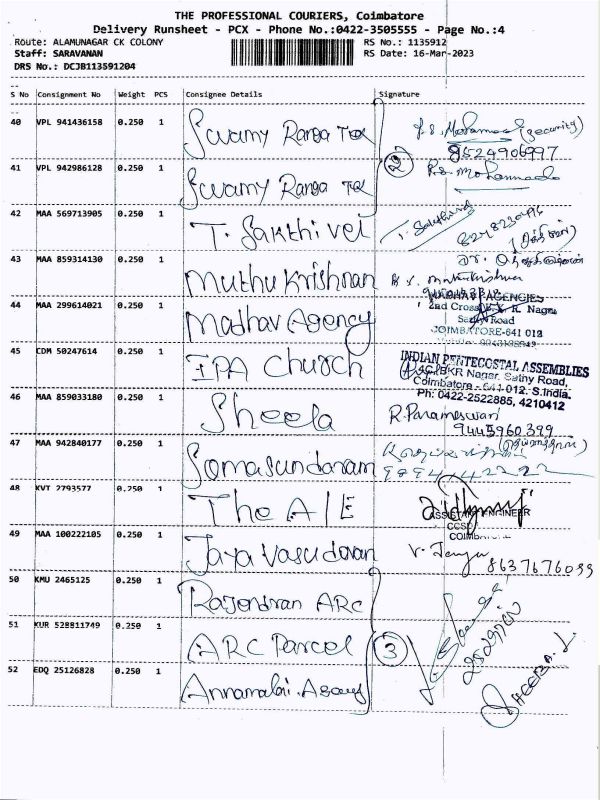 THE PROFESSIONAL COURIERS, Coimbatore
Delivery Runsheet - PCX - Phone No.:0422-3505555 - Page No.:4
Route: ALAMUNAGAR CK COLONY RS No.: 1135912
Staff: SARAVANAN RS Date: 16-Mar-2023
DRS No.: DCJB113591204
S No Consignment No Weight PCS Consignee Details Signature
40 VPL 941436158 0.250 1 Swamy Ranga Tex
(security)
8524906997
41 VPL 942986128 0.250 1 Swamy Ranga Tex 2
42 MAA 569713905 0.250 1 T. Sakthivel T. Sakthivel
43 MAA 859314130 0.250 1 Muthu Krishnan
44 MAA 299614021 0.250 1 Madhav Agency
MADHAV AGENCIES
2nd Cross, B.K.R. Nagar
Sathy Road
COIMBATORE-641 012
45 CDM 50247614 0.250 1 IPA Church
INDIAN PENTECOSTAL ASSEMBLIES
BKR Nagar, Sathy Road,
Coimbatore - 641 012. S.India.
Ph: 0422-2522885, 4210412
46 MAA 859033180 0.250 1 Sheela R. Parameswari
9445960399
47 MAA 942840177 0.250 1 Somasundaram
48 KVT 2793577 0.250 1 The A/E
ASSISTANT ENGINEER
49 MAA 100222105 0.250 1 Jaya Vasudevan
8637676099
50 KMU 2465125 0.250 1 Rajendran ARC
51 KUR 528811749 0.250 1 ARC Parcel 3
52 EDQ 25126828 0.250 1 Annamalai
SHEEBA. J